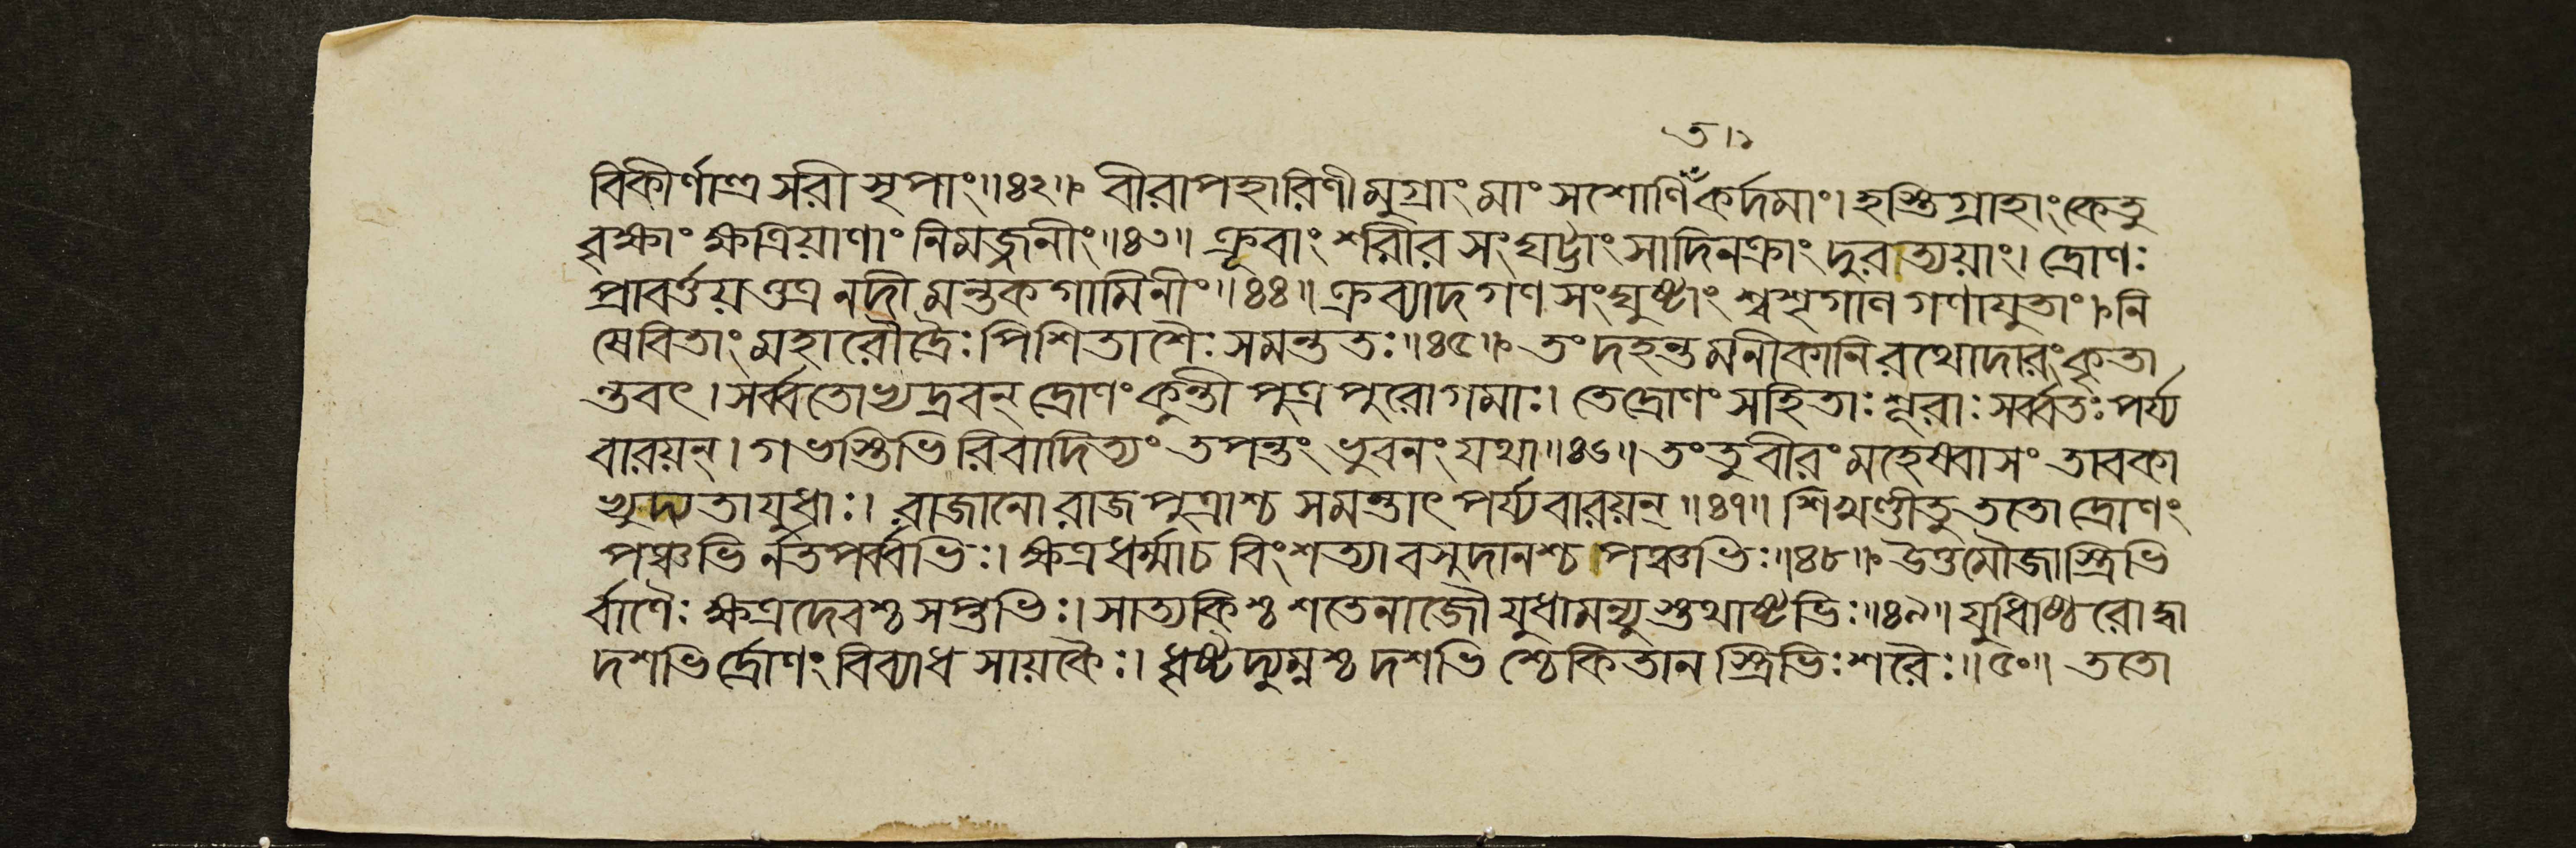 ত ।১
বিকীর্ণাশ্র সরী সৃপাং॥৪২॥ বীরাপহারিণীমুগ্রাং মাং সশোণিঁকর্দমাং। হস্তিগ্রাহাং কেতু
বৃক্ষাং ক্ষত্রিয়াণাং নিমজ্জনীং॥৪৩॥ ক্রূরাং শরীর সংঘট্টাং সাদিনক্রাং দুরাত্যয়াং। দ্রোণঃ
প্রাবর্ত্তয়ত্তত্র নদী মন্তক গামিনীং॥৪৪॥ ক্রব্যাদ গণ সংঘুষ্টাং শ্বশৃগাল গণাযুতাং। নি
ষেবিতাং মহারৌদ্রৈঃ পিশিতাশৈঃ সমন্ততঃ॥৪৫॥ তং দহন্ত মনীকানি রথোদারং কৃতা
ন্তবৎ। সর্ব্বতোভ্যদ্রবন্ দ্রোণং কুন্তী পুত্র পুরোগমাঃ। তে দ্রোণং সহিতাঃ শূরাঃ সর্ব্বতঃ পর্য্য
বারয়ন্। গভস্তিভি রিবাদিত্যং তপন্তং ভুবনং যথা॥৪৬॥ তং তু বীরং মহেষ্বাসং তাবকা
ভ্যুদ্যতাযুধাঃ। রাজানো রাজ পুত্রাশ্চ সমন্তাৎ পর্য্যবারয়ন্॥৪৭॥ শিখণ্ডী তু ততো দ্রোণং
পঞ্চভি র্নতপর্ব্বভিঃ। ক্ষত্রধর্ম্মা চ বিংশত্যা বসুদানশ্চ পঞ্চভিঃ॥৪৮॥ উত্তমৌজাস্ত্রিভি
র্বাণৈঃ ক্ষত্রদেবশ্চ সপ্তভিঃ। সাত্যকিশ্চ শতেনাজৌ যুধামন্যু স্তথাষ্টভিঃ॥৪৯॥ যুধিষ্ঠিরো দ্বা
দশভি র্দ্রোণং বিব্যাধ সায়কৈঃ। ধৃষ্টদ্যুম্নশ্চ দশভি শ্চেকিতান স্ত্রিভিঃ শরৈঃ॥৫০॥ ততো